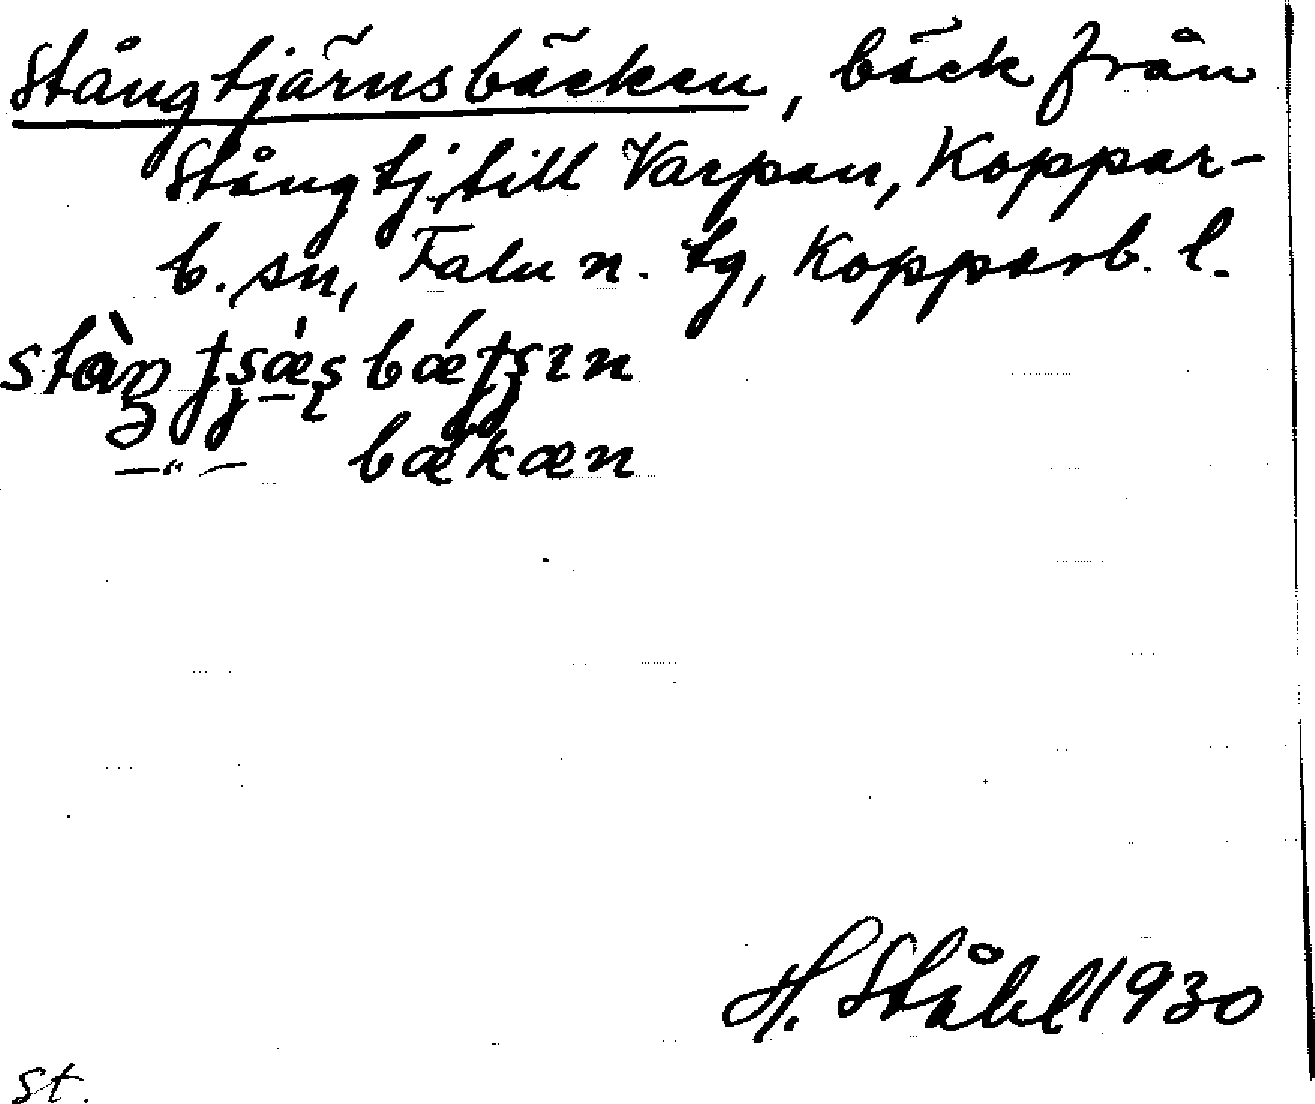 Stångtjärnsbäcken, bäck från
Stångtj. till Varpan, Koppar-
b. sn, Falu n. tg, Kopparb. l.
bækæn
H. Ståhl 1930
St.